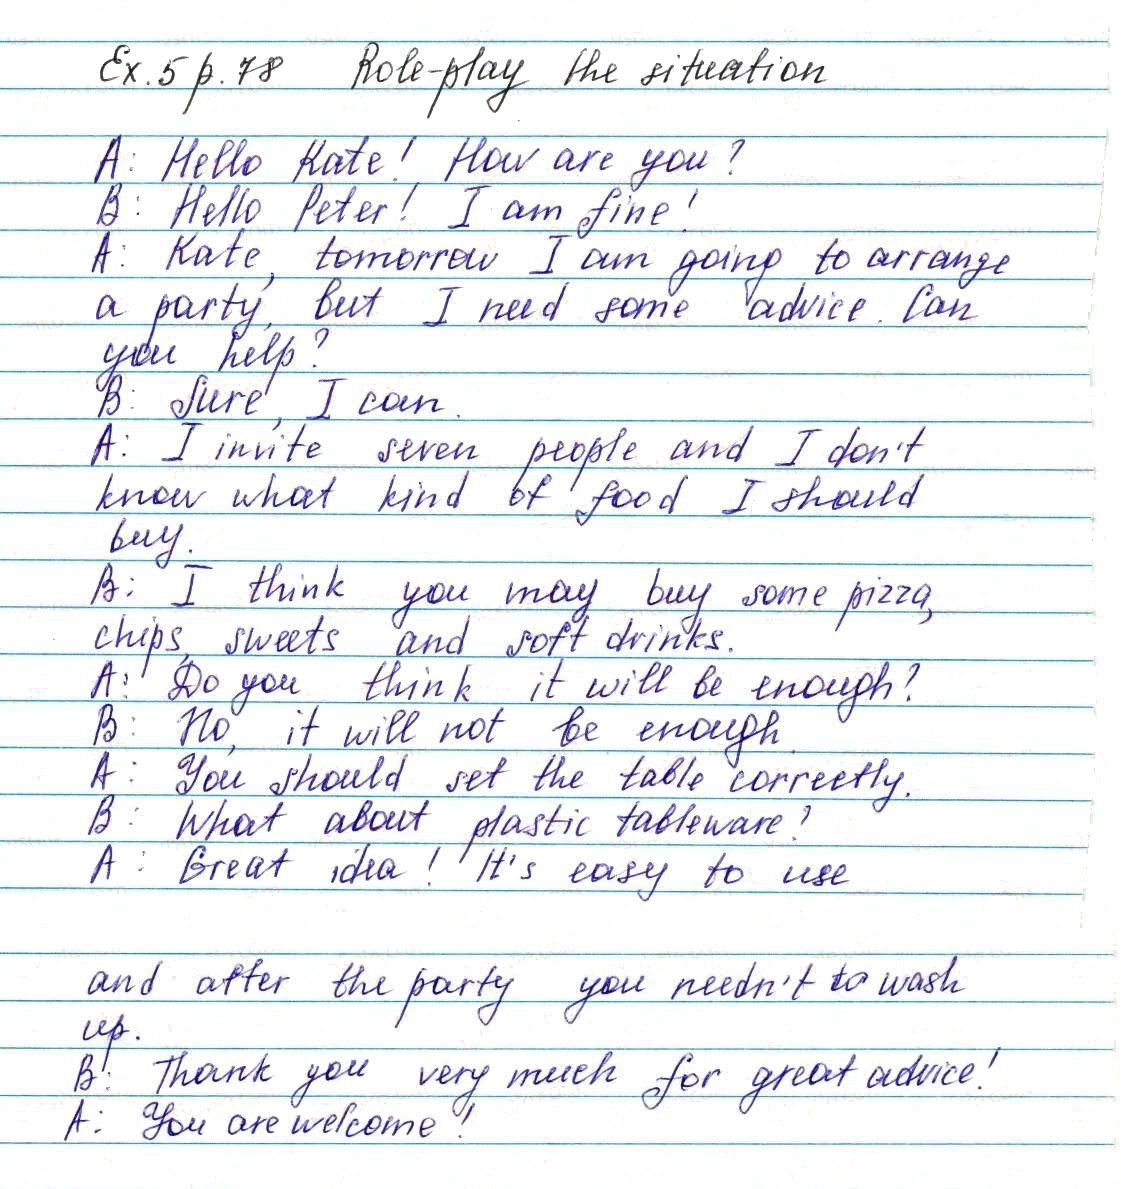 Ex. 5 p. 78 Role-play the situation
A: Hello Kate! How are you?
B: Hello Peter! I am fine!
A: Kate, tomorrow I am going to arrange
a party, but I need some advice. Can
you help?
B: Sure, I can.
A: I invite seven people and I don't
know what kind of food I should
buy.
B: I think you may buy some pizza,
chips, sweets and soft drinks.
A: Do you think it will be enough?
B: No, it will not be enough.
A: You should set the table correctly.
B: What about plastic tableware?
A: Great idea! It's easy to use
and after the party you needn't to wash
up.
B: Thank you very much for great advice!
A: You are welcome!